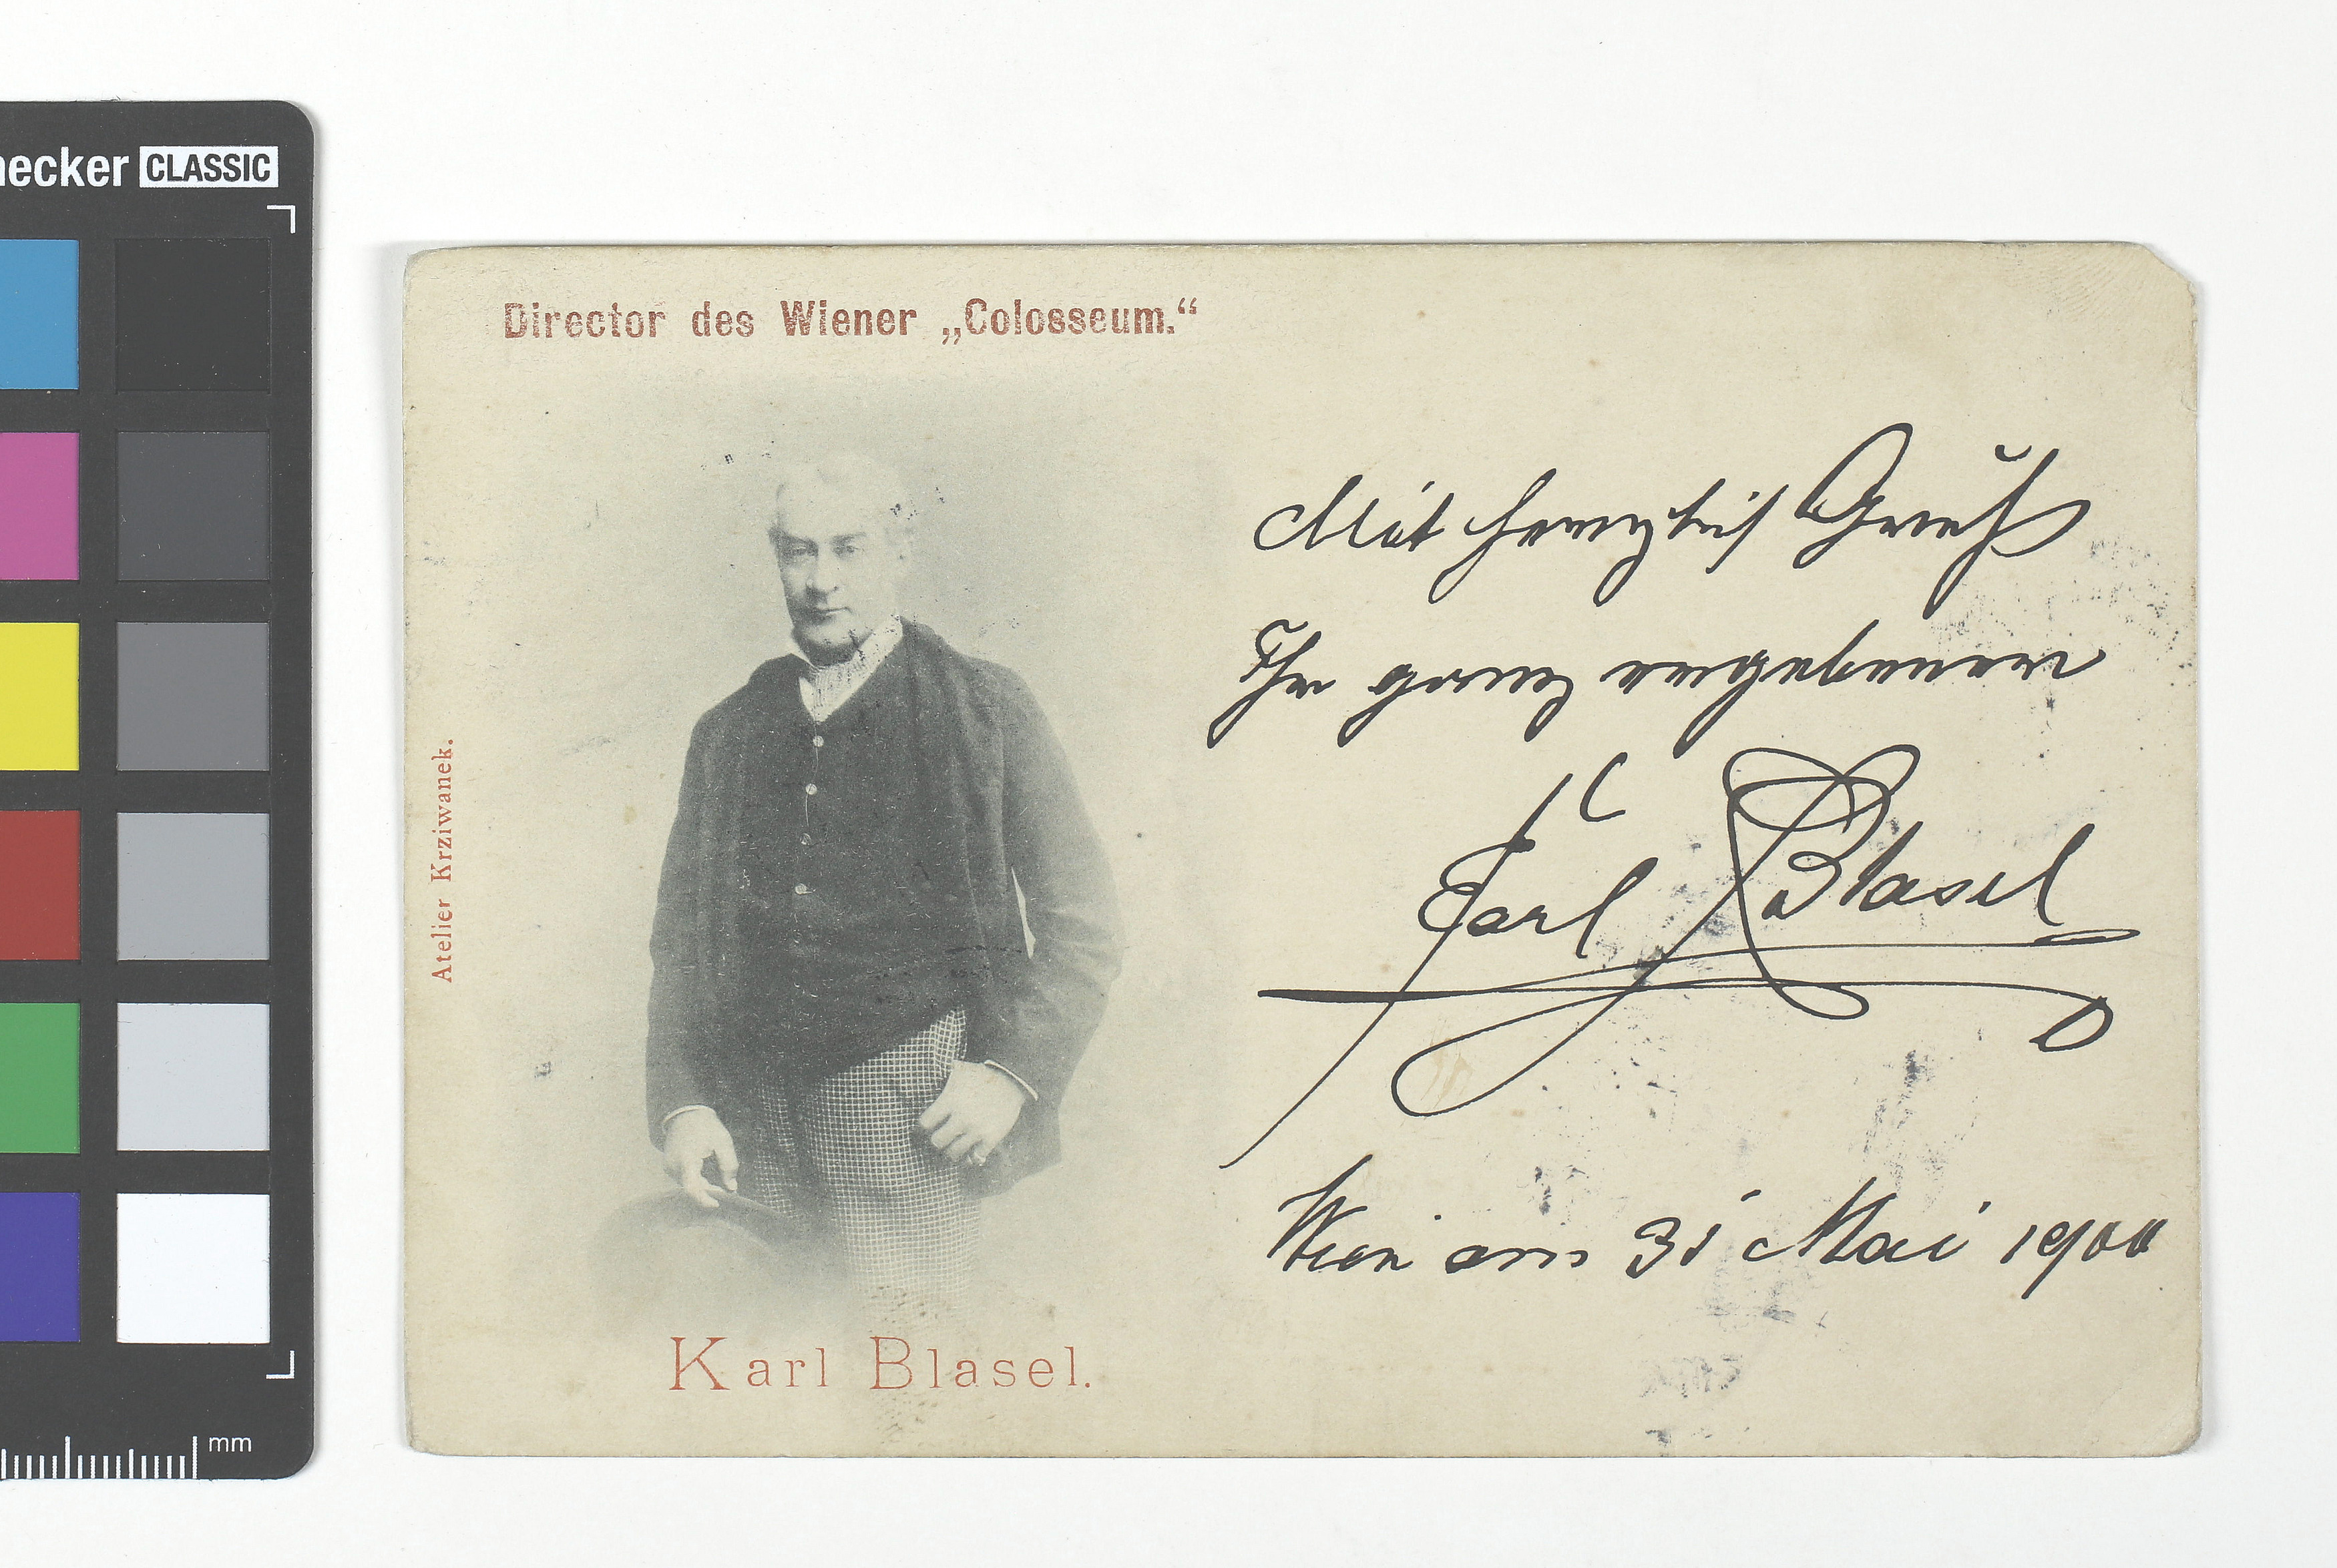 necker CLASSIC
mm
Director des Wiener „Colosseum.“
Atelier Krziwanek.
Karl Blasel.
Mit herzlich Gruß
Ihr ganz ergebener
Carl Blasel
Wien am 31 Mai 1900